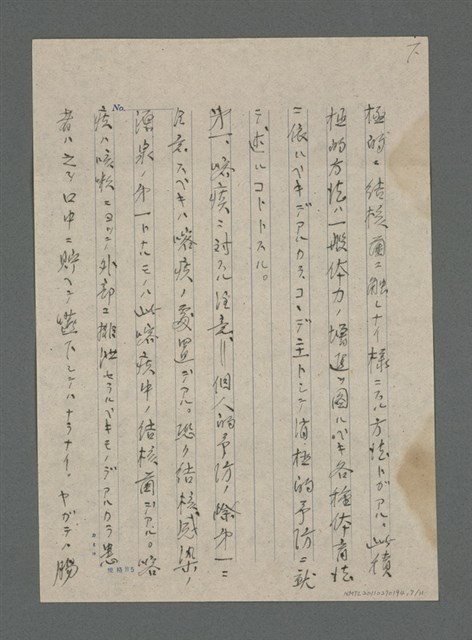 極的ニ結核菌ニ触レナイ様ニスル方法トガアル。此積
極的方法ハ一般体力ノ増進ヲ図ルベキ各種体育法
ニ依ルベキデアルカラココデ主トシテ消極的予防ニ就
テ述ルコトトスル。
第一、喀痰ニ対スル注意＝個人的予防ノ際第一ニ
注意スベキハ喀痰ノ処置デアル。恐ク結核感染ノ
源泉ノ第一トナルモノハ此喀痰中ノ結核菌デアル。喀
痰ハ咳嗽ニヨッテ外部ニ排泄セラルベキモノデアルカラ患
者ハ之ヲ口中ニ貯ヘテ嚥下シテハナラナイ。ヤガテハ腸
No.
7.
NMTL20150270190, 7/11